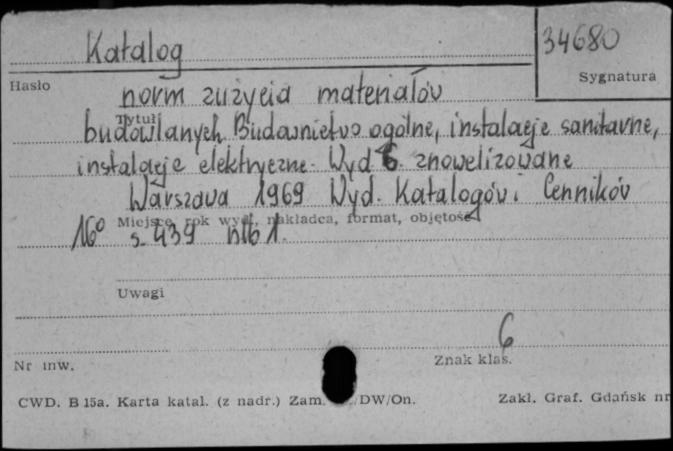 Katalog
34680
Hasło
Sygnatura
norm zużycia materiałów
Tytuł
budowlanych Budownictwo ogólne, instalacje sanitarne,
instalacje elektryczne. Wyd 6. znowelizowane
Warszawa 1969 Wyd. Katalogów i Cenników
Miejsce, rok wyd., nakładca, format, objętość
16° s. 439 nlb 1.
Uwagi
6
Nr inw.
Znak klas.
CWD. B 15a. Karta katal. (z nadr.) Zam. DW/On.
Zakł. Graf. Gdańsk nr